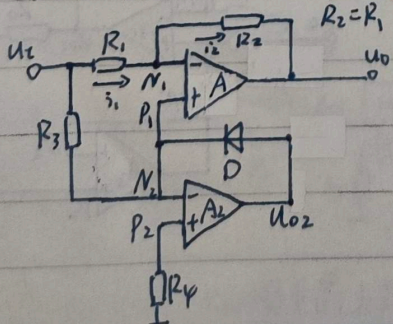 R₂=R₁
u_I
R₁
i₁
N₁
i₂
R₂
A
u_o
P₁
R₃
D
N₂
A₂
u_o2
P₂
R₄
-
+
-
+